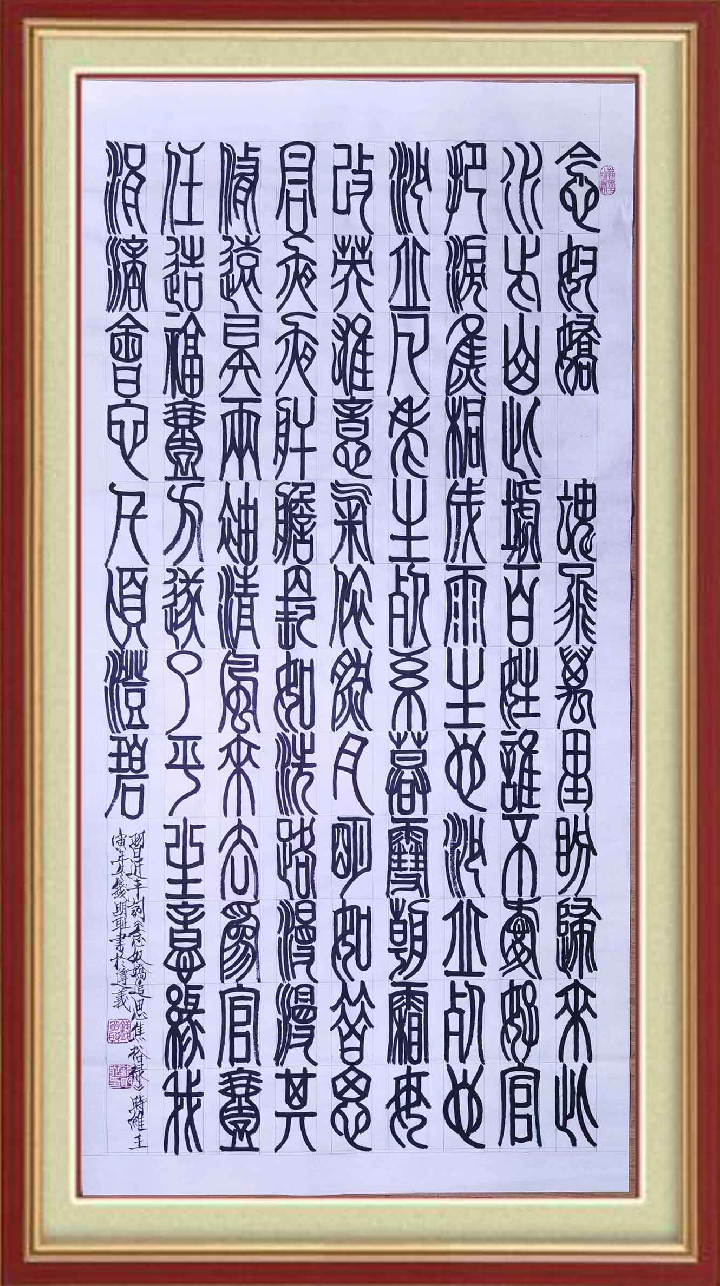 念奴嬌 魂飛萬里盼歸來此
水此山此地百姓誰不愛好官
把淚焦桐成雨生也沙丘死也
沙丘父老生死系暮雪朝霜毋
改英雄意氣依然月明如昔思
君夜夜肝膽長如洗路漫漫其
脩遠矣兩袖清風來去爲官壹
任造福壹方遂了平生意綠我
涓滴會它千頃澄碧
習近平詞念奴嬌追思焦裕祿 時維壬
寅之夏 書於遵義